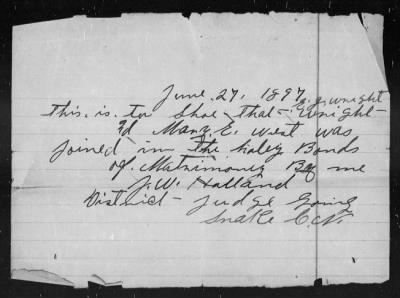 June. 27, 1897
E. J. Wright
This. is. to Shoe that - Wright -
Marz. E. West was
Joined in The holey Bonds
of. Matrimony By me
J. W. Holland
District - Judge Going
Snake C. N.